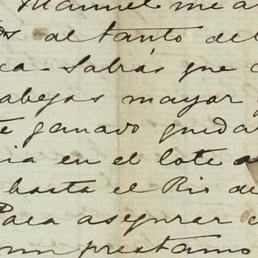 Manuel me a
ds al tanto del
ca. Sabrás que
abejas mayor y
te ganado quedar
ia en el lote
hasta el Rio de
Para asegurar
un prestamo